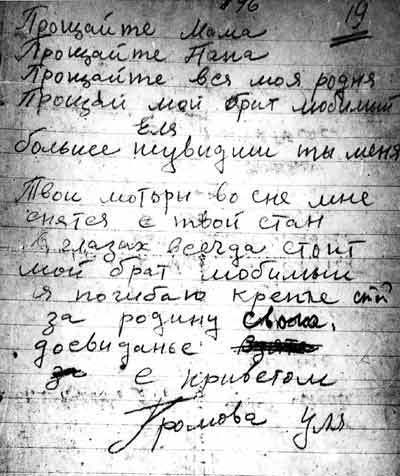 19
Прощайте Мама
Прощайте Папа
Прощайте вся моя родня
Прощай мой брат любимый
Еля
больше неувидиш ты меня
Твои моторы во сне мне
снятся Е твой стан
в глазах всегда стоит
мой брат любимый
я погибаю крепче стой
за родину свою.
досвиданье
с приветом
Громова Уля